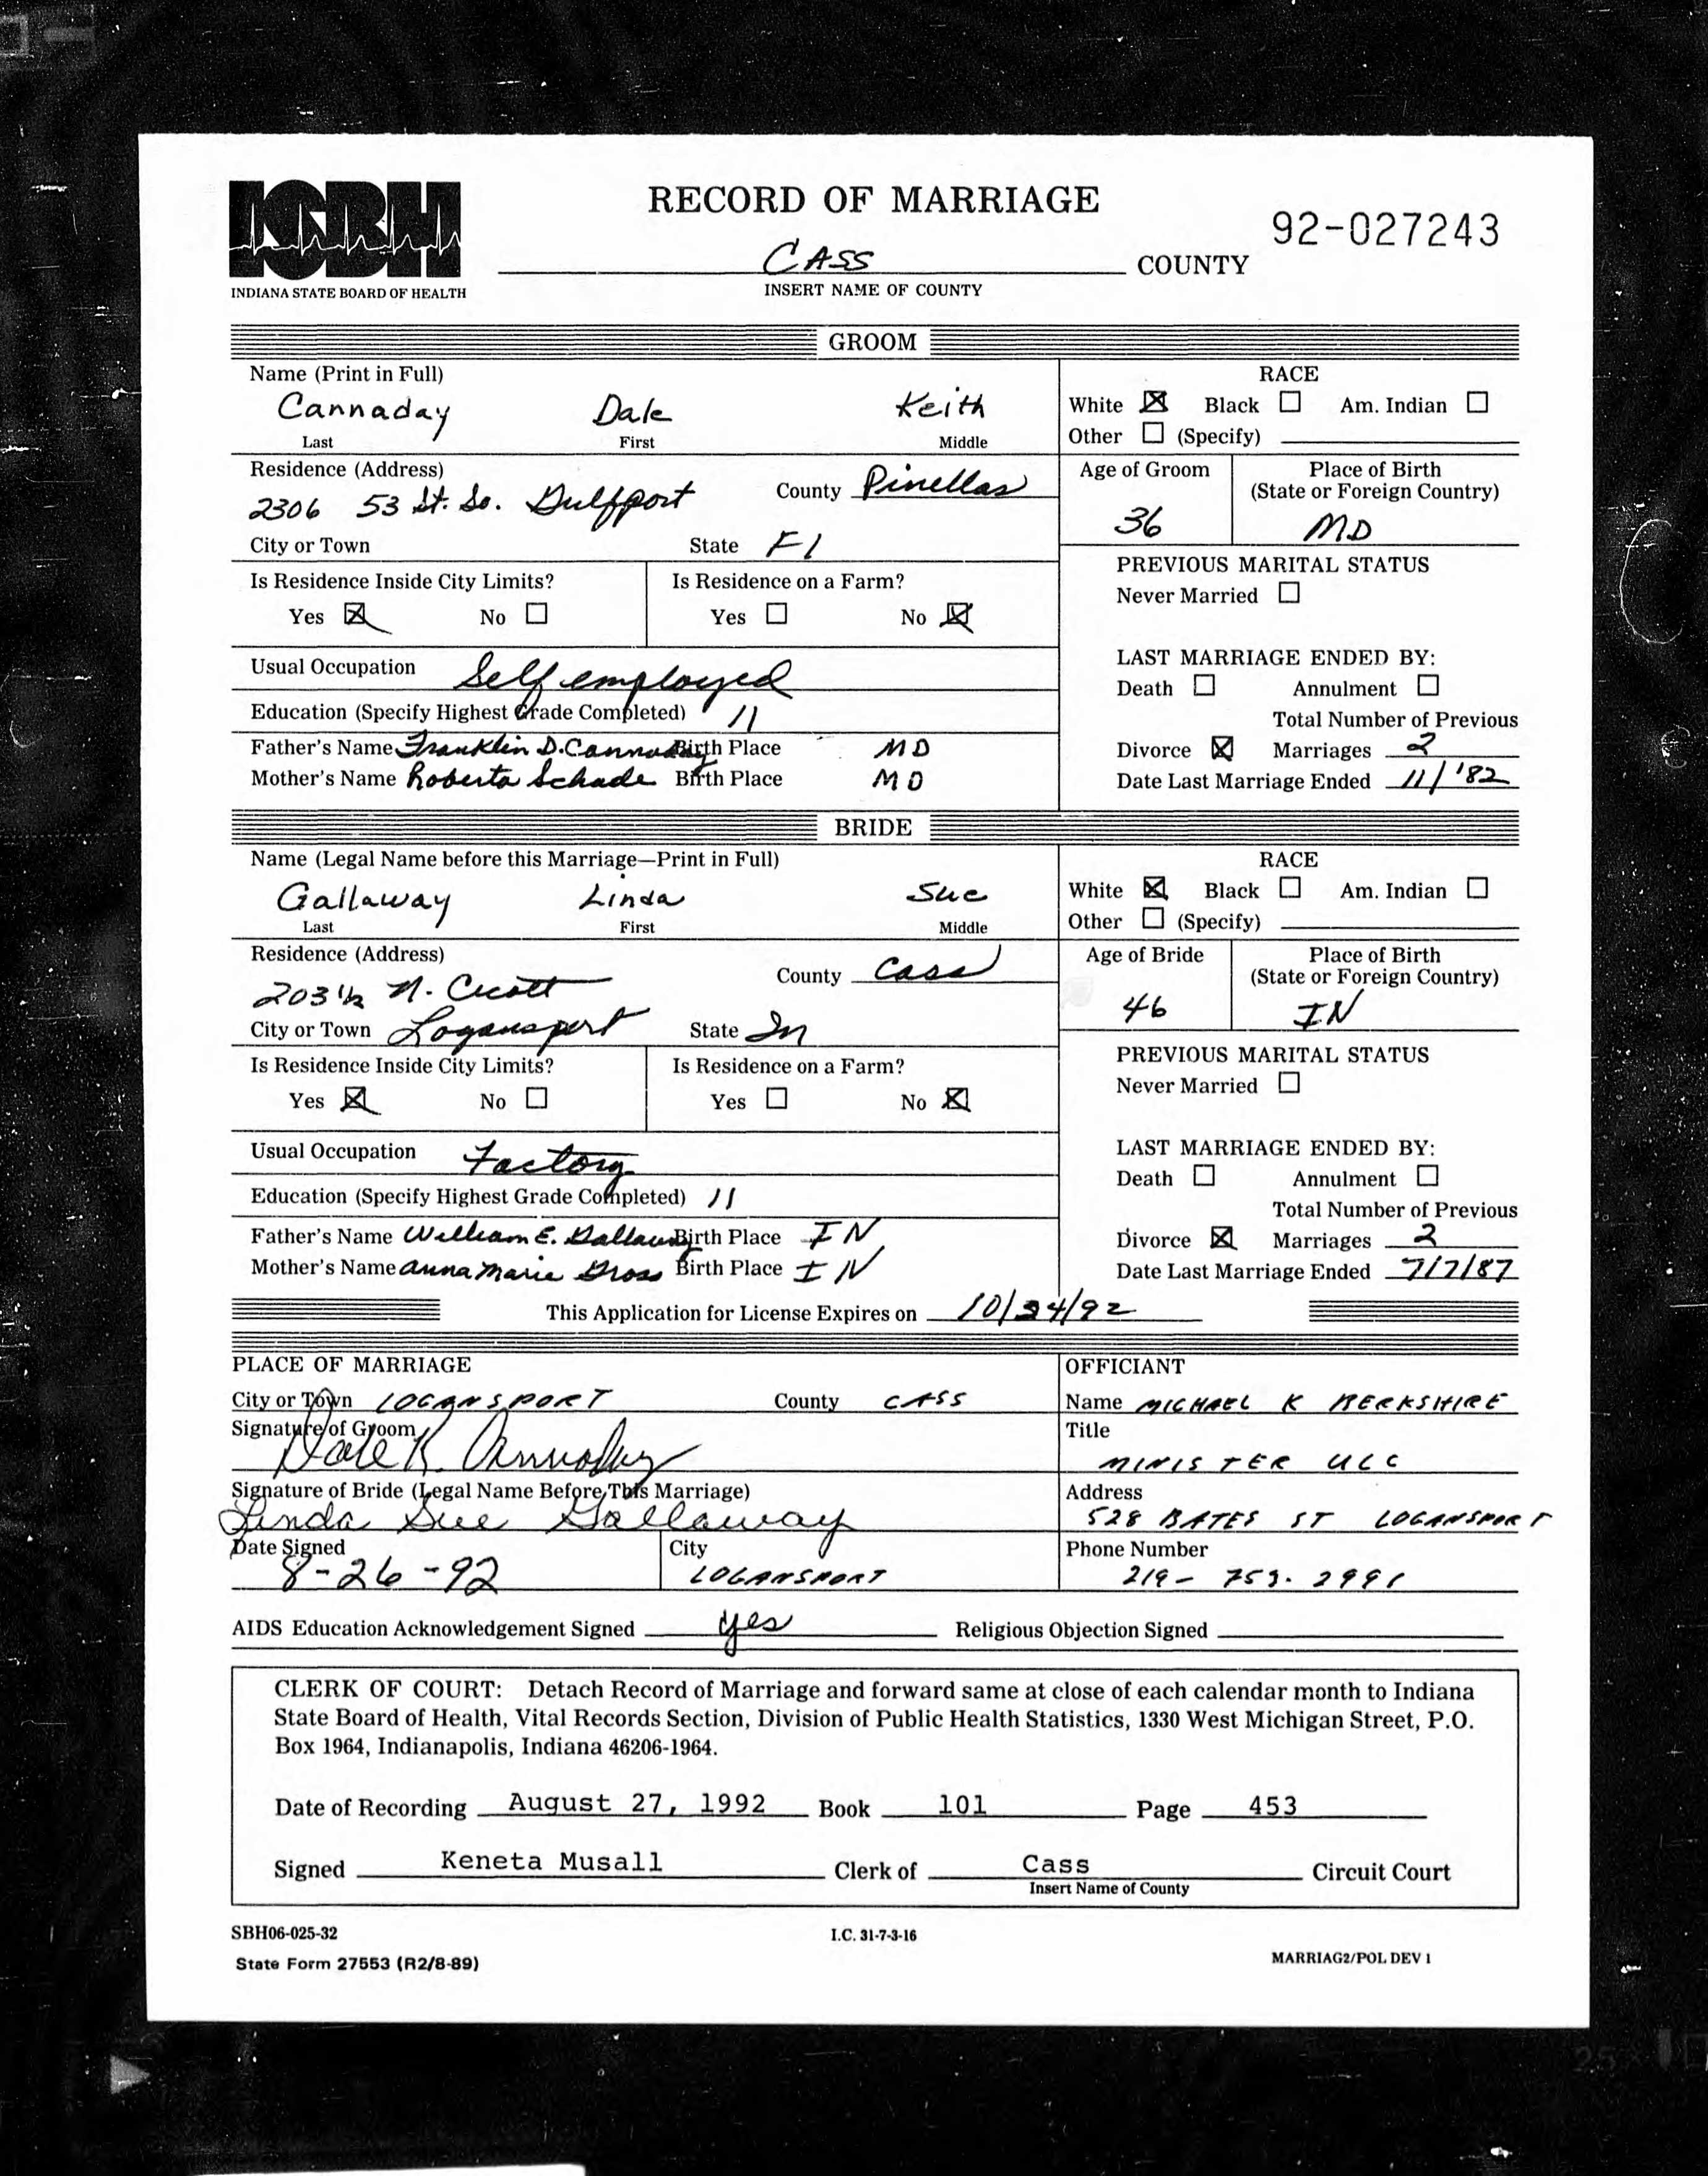 ISBH
INDIANA STATE BOARD OF HEALTH
RECORD OF MARRIAGE
92-027243
CASS COUNTY
INSERT NAME OF COUNTY
GROOM
Name (Print in Full)
Cannaday Dale Keith
Last First Middle
RACE
White ☒ Black ☐ Am. Indian ☐
Other ☐ (Specify)
Residence (Address)
2306 53 St. So. Gulfport County Pinellas
City or Town State Fl
Age of Groom
36
Place of Birth
(State or Foreign Country)
MD
Is Residence Inside City Limits?
Yes ☒ No ☐
Is Residence on a Farm?
Yes ☐ No ☒
PREVIOUS MARITAL STATUS
Never Married ☐
Usual Occupation Self employed
Education (Specify Highest Grade Completed) 11
Father's Name Franklin D. Cannaday Birth Place MD
Mother's Name Roberta Schade Birth Place MD
LAST MARRIAGE ENDED BY:
Death ☐ Annulment ☐
Total Number of Previous
Divorce ☒ Marriages 2
Date Last Marriage Ended 11/'82
BRIDE
Name (Legal Name before this Marriage—Print in Full)
Gallaway Linda Sue
Last First Middle
RACE
White ☒ Black ☐ Am. Indian ☐
Other ☐ (Specify)
Residence (Address)
203 1/2 N. Cicott County Cass
City or Town Logansport State In
Age of Bride
46
Place of Birth
(State or Foreign Country)
IN
Is Residence Inside City Limits?
Yes ☒ No ☐
Is Residence on a Farm?
Yes ☐ No ☒
PREVIOUS MARITAL STATUS
Never Married ☐
Usual Occupation Factory
Education (Specify Highest Grade Completed) 11
Father's Name William E. Gallaway Birth Place IN
Mother's Name Anna Marie Gross Birth Place IN
LAST MARRIAGE ENDED BY:
Death ☐ Annulment ☐
Total Number of Previous
Divorce ☒ Marriages 2
Date Last Marriage Ended 7/7/87
This Application for License Expires on 10/24/92
PLACE OF MARRIAGE
City or Town LOGANSPORT County CASS
Signature of Groom
Dale K. Cannaday
Signature of Bride (Legal Name Before This Marriage)
Linda Sue Gallaway
Date Signed
8-26-92
City
LOGANSPORT
OFFICIANT
Name MICHAEL K BERKSHIRE
Title
MINISTER ULC
Address
528 BATES ST LOGANSPORT
Phone Number
219- 753. 2991
AIDS Education Acknowledgement Signed yes Religious Objection Signed
CLERK OF COURT: Detach Record of Marriage and forward same at close of each calendar month to Indiana
State Board of Health, Vital Records Section, Division of Public Health Statistics, 1330 West Michigan Street, P.O.
Box 1964, Indianapolis, Indiana 46206-1964.
Date of Recording August 27, 1992 Book 101 Page 453
Signed Keneta Musall Clerk of Cass Circuit Court
Insert Name of County
SBH06-025-32
I.C. 31-7-3-16
State Form 27553 (R2/8-89)
MARRIAG2/POL DEV 1